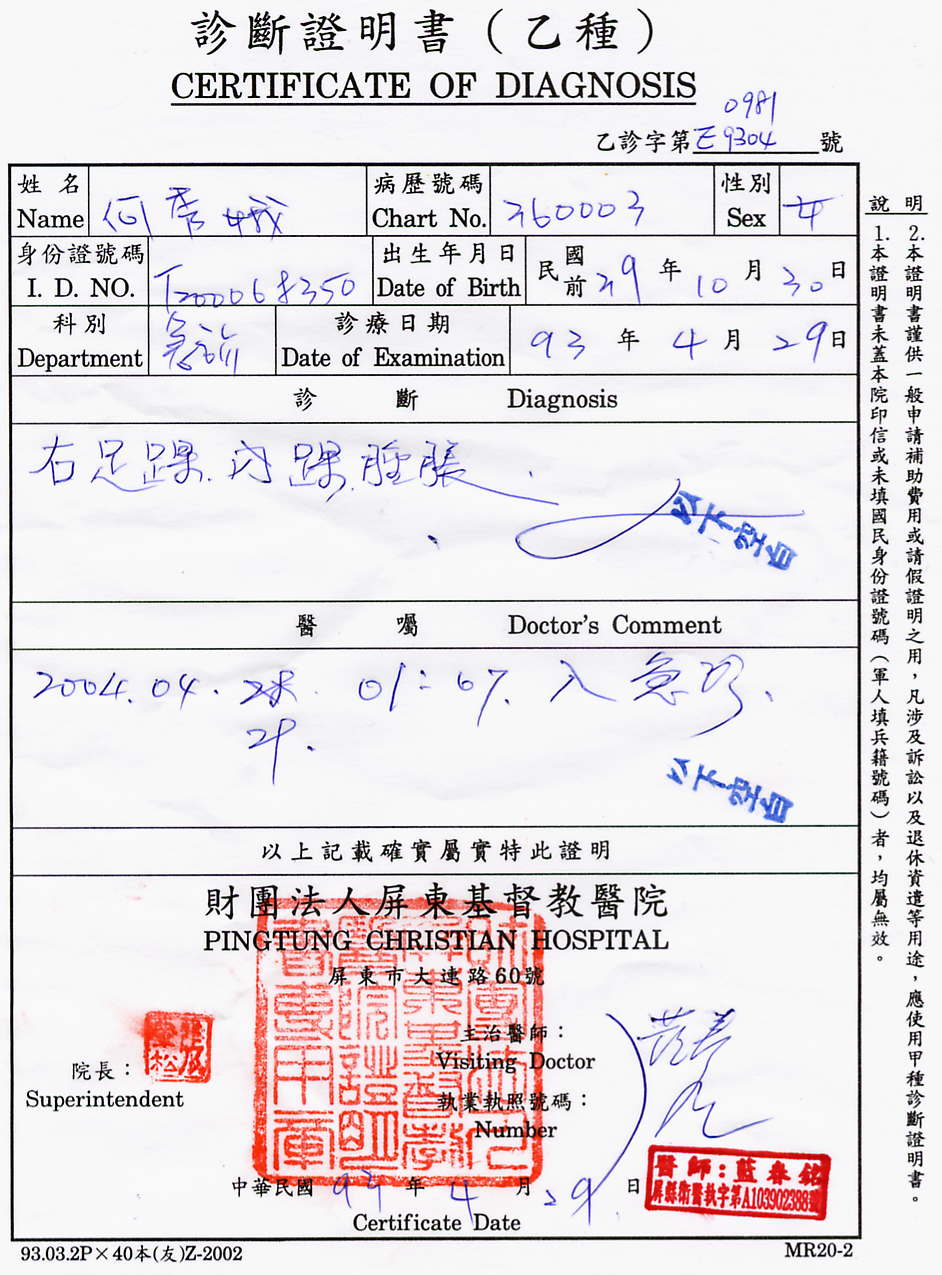 診斷證明書（乙種）
CERTIFICATE OF DIAGNOSIS
0981
乙診字第E9304號
姓名 Name 何秀娥 病歷號碼 Chart No. 260003 性別 Sex 女
身份證號碼 I. D. NO. T200068350 出生年月日 Date of Birth 民國前29年10月30日
科別 Department 急診 診療日期 Date of Examination 93年4月29日
診斷 Diagnosis
右足踝.內踝.腫脹.
以下空白
醫囑 Doctor's Comment
2004.04. 28. 01:07. 入急診、
29.
以下空白
以上記載確實屬實特此證明
財團法人屏東基督教醫院
PINGTUNG CHRISTIAN HOSPITAL
屏東市大連路60號
主治醫師：
Visiting Doctor
院長：
Superintendent
執業執照號碼：
Number
醫師：藍春銘
屏縣衛醫執字第A103902388號
中華民國93年4月29日
Certificate Date
93.03.2P×40本(友)Z-2002
MR20-2
說明
1.本證明書未蓋本院印信或未填國民身份證號碼（軍人填兵籍號碼）者，均屬無效。
2.本證明書謹供一般申請補助費用或請假證明之用，凡涉及訴訟以及退休資遣等用途，應使用甲種診斷證明書。